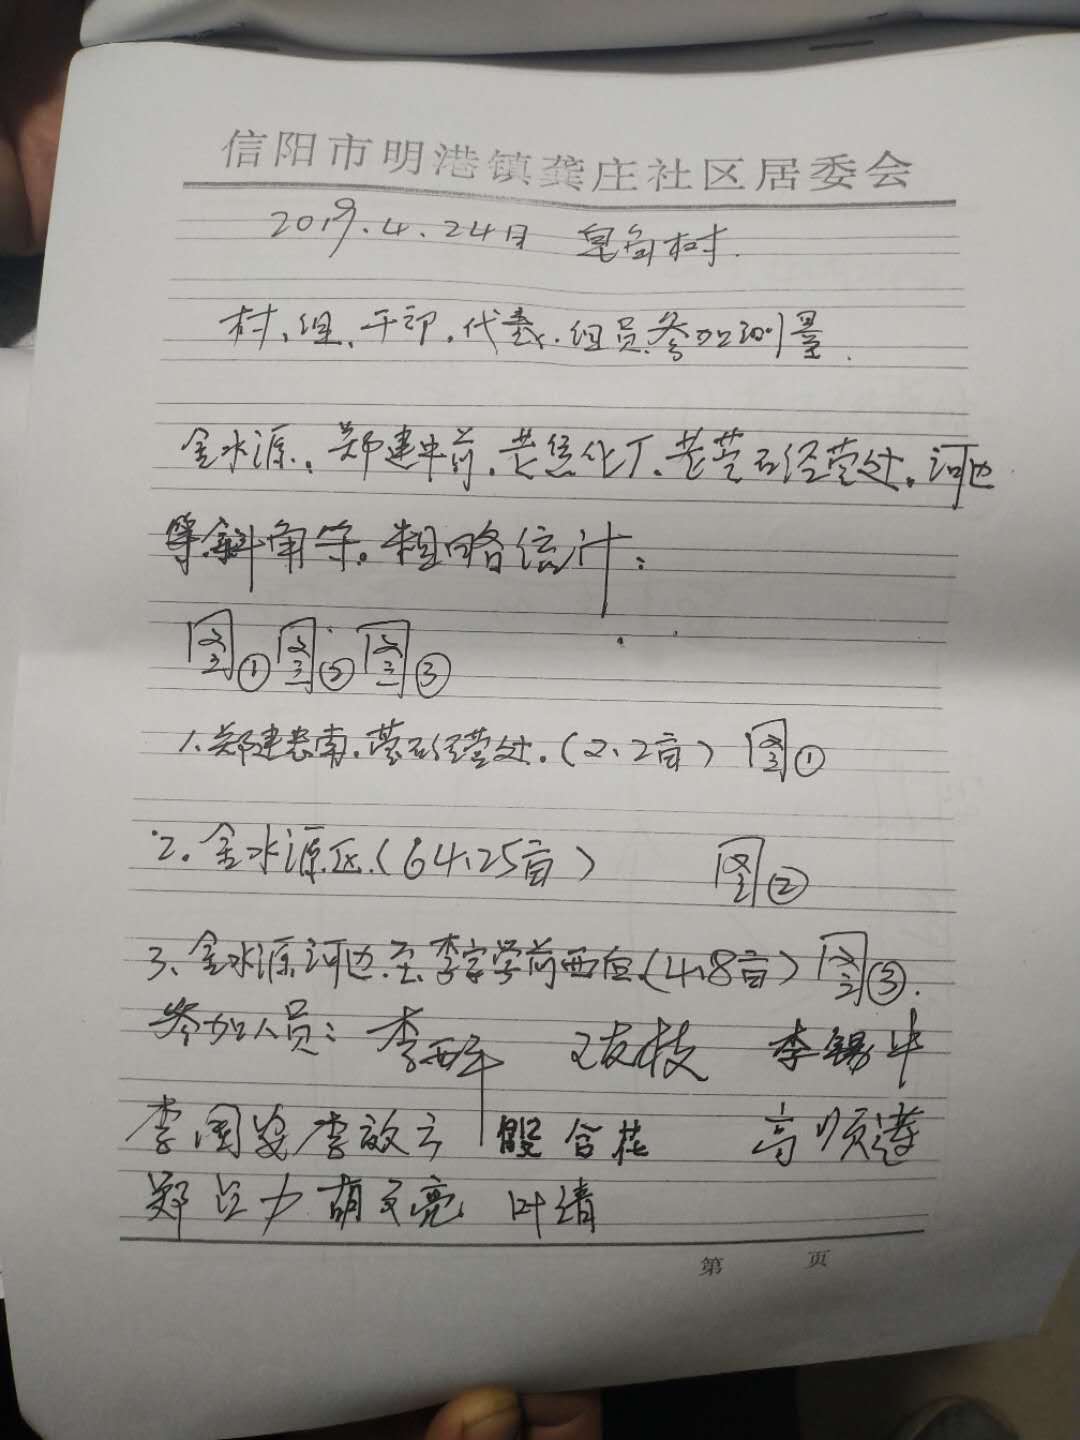 信阳市明港镇龚庄社区居委会
2019.4.24日 皂角树.
村、组、干部.代表.组员.参加测量.
金水源、郑建中前.老焦化厂、老萤石经营处.河边
等斜角等。粗略估计:
图①图②图③
1.郑建老南.萤石经营处.(2.2亩) 图①
2.金水源.区.(64.25亩) 图②
3、金水源河边.至.李家学前西(4.8亩)图③.
参加人员: 李 友枝 李锡中
李国 李放云 含花 高顺
郑立力 胡文亮 叶靖
第 页